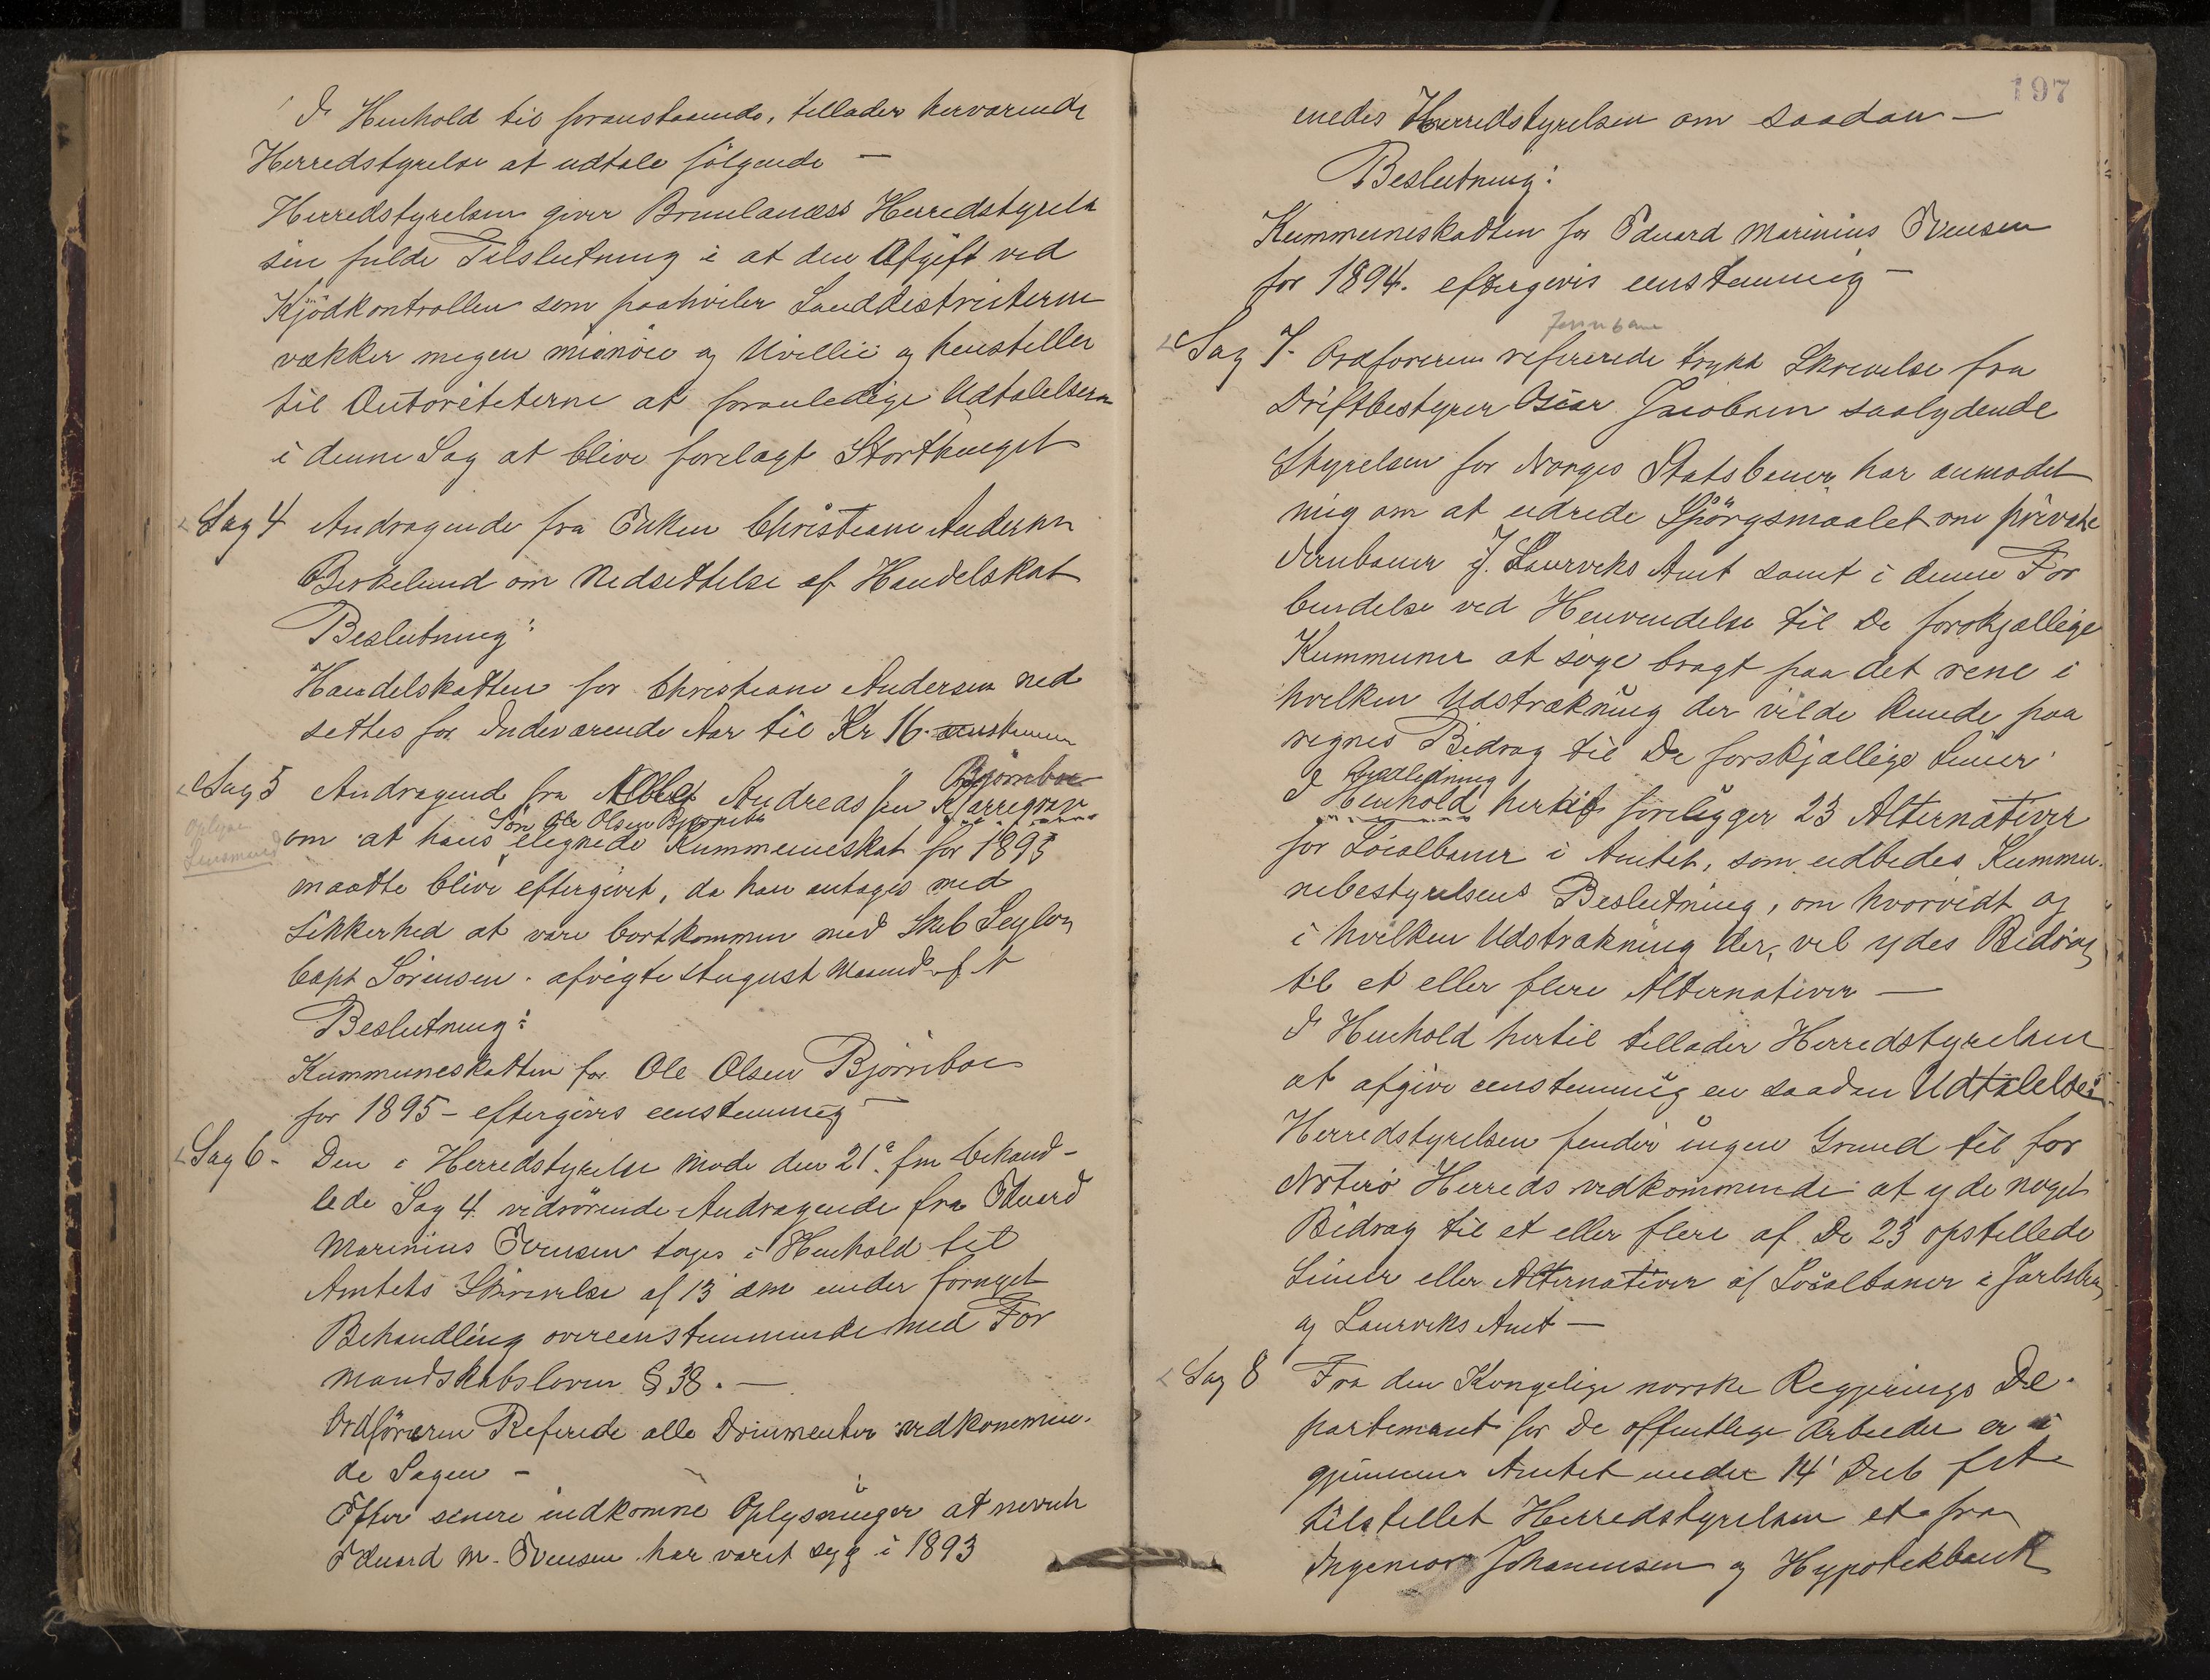 I Henhold til foranstaaende, tillader herværende
Herredstyrelse at udtale følgende —
Herredstyrelsen giver Brunlanæss Herredstyrelse
sin fulde Tilslutning i at den Afgift ved
Kjödkontrollen som paahviler Landdistricterne
vækker megen misnöie og Uvillie og henstiller
til Autoriteterne at foranledige Udtalelserne
i denne Sag at blive forelagt Storthinget
Sag 4 Andragende fra Enken Christiane Andersen
Birkelund om Nedsettelse af Handelskat
Beslutning:
Handelskatten for Christiane Andersen ned
settes for Indeværende Aar til Kr 16. eenstemm
Bjørnboe
Sag 5 Andragend fra Andreassen Karregrav
Søn Ole Olsen Bjørnebo
Oplyse
Lensmand
om at hans elegnede Kummuneskat for 1895
maatte blive eftergivet, da han antages med
Sikkerhed at være bortkommen med Skib Seylon
Capt Sörensen. afvigte August Maaned
Beslutning:
Kummuneskatten for Ole Olsen Bjørnboe
for 1895 – eftergives eenstemmig –
Sag 6 – Den i Herredstyrelse Møde den 21de fm behand-
lede Sag 4 vidrörende Andragende fra Eduard
Marinius Evensen tages i Henhold til
Amtets Skrivelse af 13 dm under fornyet
Behandling overeenstemmende med For
mandskabsloven § 38. —
Ordföreren Referede alle Documenter vedkommen-
de Sagen –
Efter senere indkomne Oplysninger at nevnte
Eduard M. Evensen har været syg i 1893
197
enedes Herredstyrelsen om saadan —
Beslutning:
Kummuneskatten for Eduard Marinius Evensen
for 1894. eftergives eenstemmig –
Jernbane
Sag 7. Ordføreren refererede trykt Skrivelse fra
Driftbestyrer Oscar Jacobsen saalydende
Styrelsen for Norges Statsbaner har anmodet
mig om at udrede Spörgsmaalet om private
Jernbaner i J. Laurviks Amt samt i denne For
bindelse ved Henvendelse til De forskjællige
Kummuner at søge bragt paa det rene i
hvilken Udstrækning der vilde kunde paa
regnes Bidrag til De forskjællige Linier
Anledning
I Henhold hertil foreligger 23 Alternativer
for Localbaner i Amtet, som udbedes Kummu-
nebestyrelsens Beslutning, om hvorvidt og
i hvilken Udstrækning der, vil ydes Bidrag
til et eller flere Alternativer —
I Henhold hertil tillader Herredstyrelsen
at afgive eenstemmig en saadan Udtalelse:
Herredstyrelsen finder ingen Grund til for
Nöterö Herreds vedkommende at yde noget
Bidrag til et eller flere af De 23 opstillede
Linier eller Alternativer af Localbaner i Jarlsberg
og Laurviks Amt —
Sag 8 Fra den Kongelige norske Regjerings De-
partement for De offentlige Arbeider er i
gjennem Amtet under 14' Decb
tilstillet Herredstyrelsen et fra
Ingeniør Johannesen og Hypotekbank